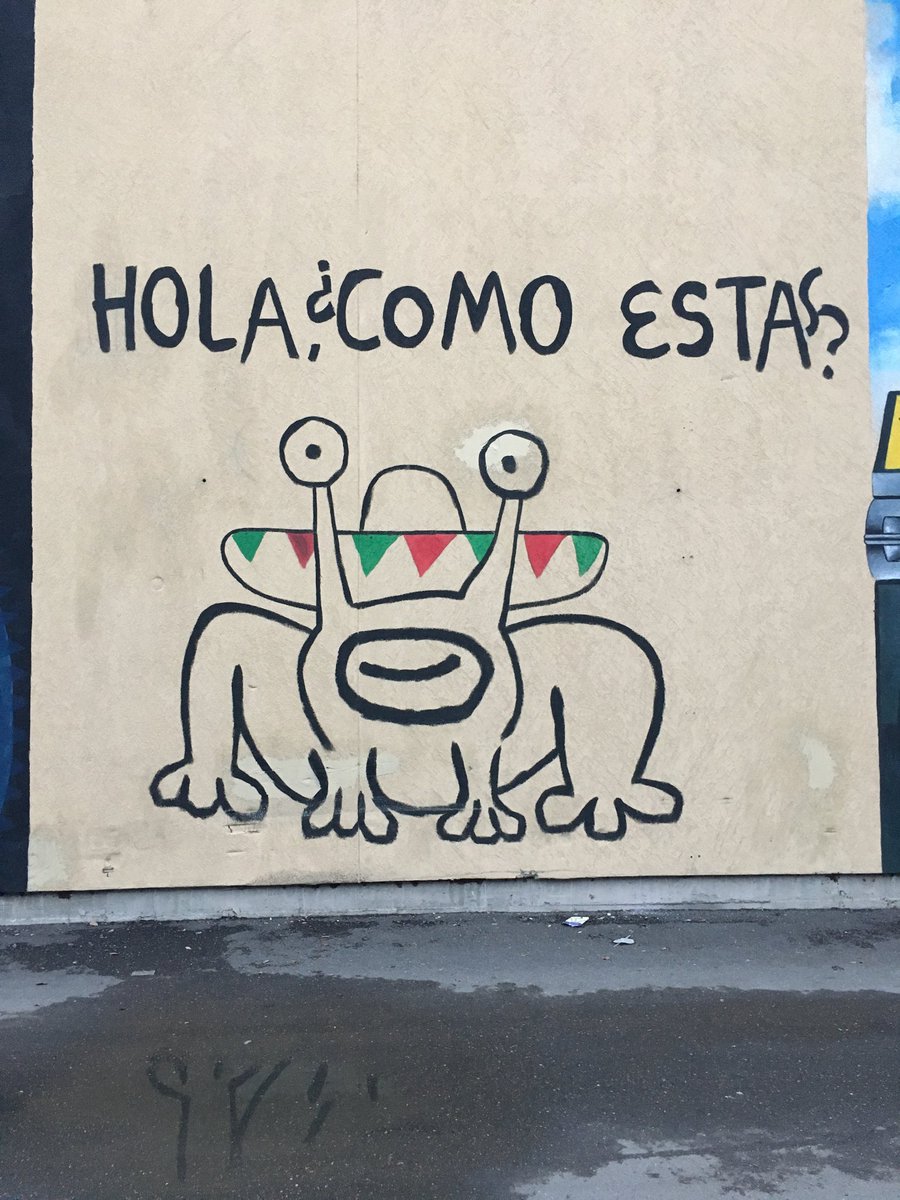 HOLA,¿COMO ESTAS?